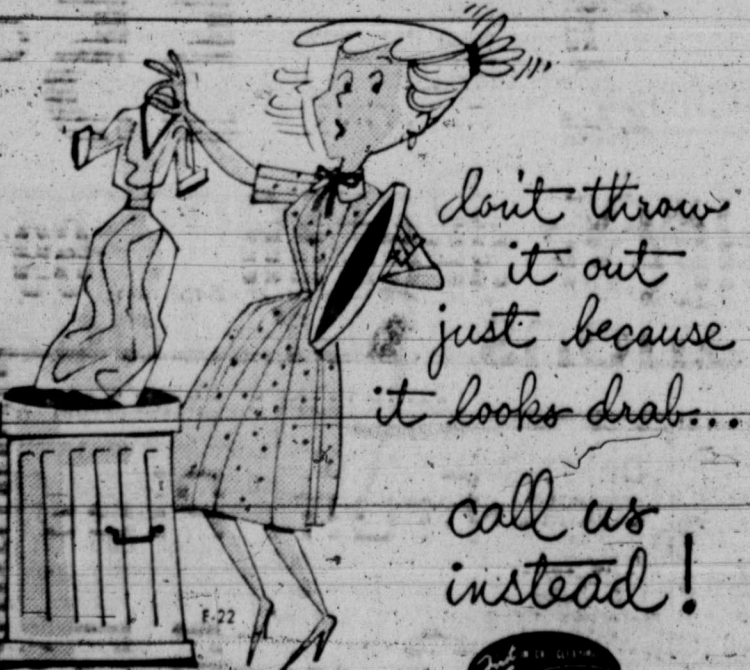 don't throw
it out
just because
it looks drab...
call us
instead!
E-22